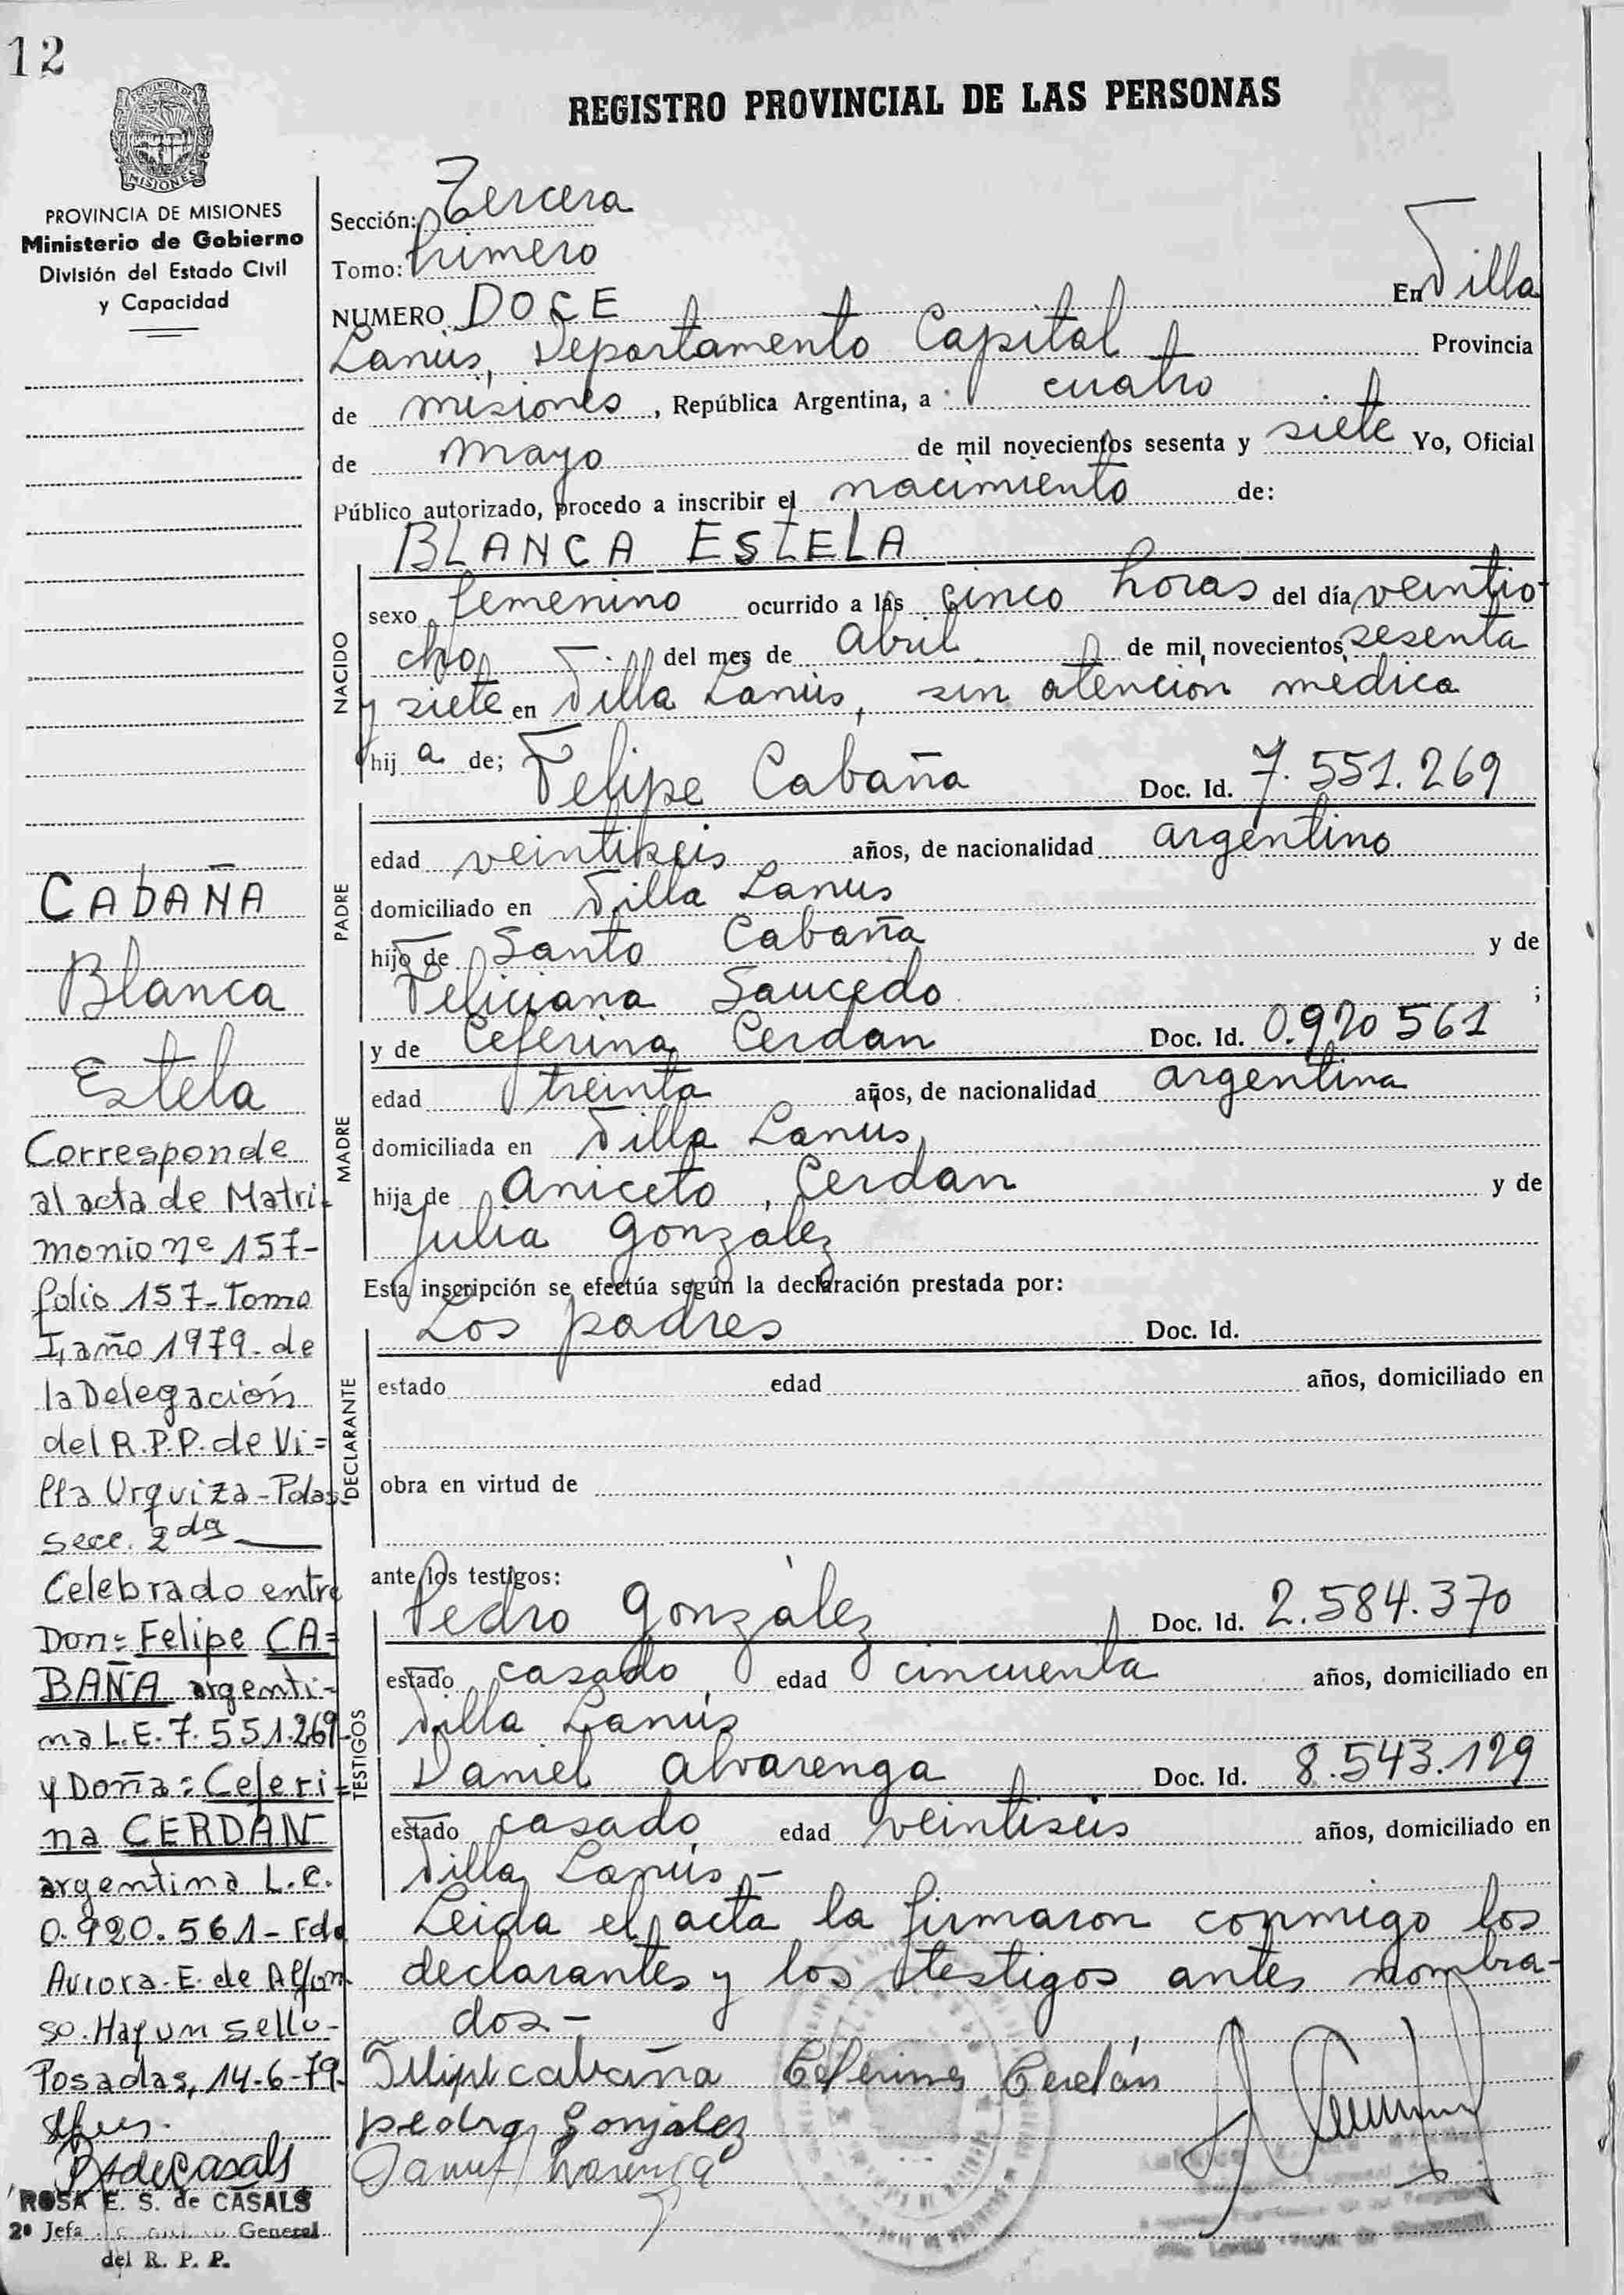 12
REGISTRO PROVINCIAL DE LAS PERSONAS
MISIONES
PROVINCIA DE MISIONES
Ministerio de Gobierno
División del Estado Civil
y Capacidad
Sección: Tercera
Tomo: Primero
NUMERO DOCE En Villa
Lanús, Departamento Capital Provincia
de misiones, República Argentina, a cuatro
de mayo de mil novecientos sesenta y siete Yo, Oficial
Público autorizado, procedo a inscribir el nacimiento de:
BLANCA ESTELA
NACIDO
sexo femenino ocurrido a las cinco horas del día veintio-
cho del mes de Abril de mil novecientos sesenta
y siete en Villa Lanús, sin atencion medica
hij a de; Felipe Cabaña Doc. Id. 7.551.269
PADRE
edad veintiseis años, de nacionalidad argentino
domiciliado en Villa Lanus
hijo de Santo Cabaña y de
Feliciana Saucedo ;
y de Ceferina Cerdan Doc. Id. 0.920 561
MADRE
edad treinta años, de nacionalidad argentina
domiciliada en Villa Lanus,
hija de Aniceto Cerdan y de
Julia González
Esta inscripción se efectúa según la declaración prestada por:
Los padres Doc. Id.
DECLARANTE
estado edad años, domiciliado en
obra en virtud de
ante los testigos:
TESTIGOS
Pedro González Doc. Id. 2.584.370
estado casado edad cincuenta años, domiciliado en
Villa Lanús
Daniel Alvarenga Doc. Id. 8.543.129
estado casado edad veintiseis años, domiciliado en
Villa Lanús,-
Leida el acta la firmaron conmigo los
declarantes y los testigos antes nombra-
dos-
Felipe cabaña Ceferina Cerdán
pedro Gonjalez
CABAÑA
Blanca
Estela
Corresponde
al acta de Matri-
monio nº 157-
folio 157-Tomo
I, año 1979. de
la Delegación
del R.P.P. de Vi=
lla Urquiza-Pdas.
Secc. 2da
Celebrado entre
Don= Felipe CA=
BAÑA argenti-
no L.E. 7.551.269-
y Doña= Ceferi=
na CERDAN
argentina L.C.
0.920.561-Fdo
Aurora E. de Alfon
so. Hay un sello-
Posadas, 14-6-79-
ROSA E. S. de CASALS
2ª Jefa General
del R. P. P.